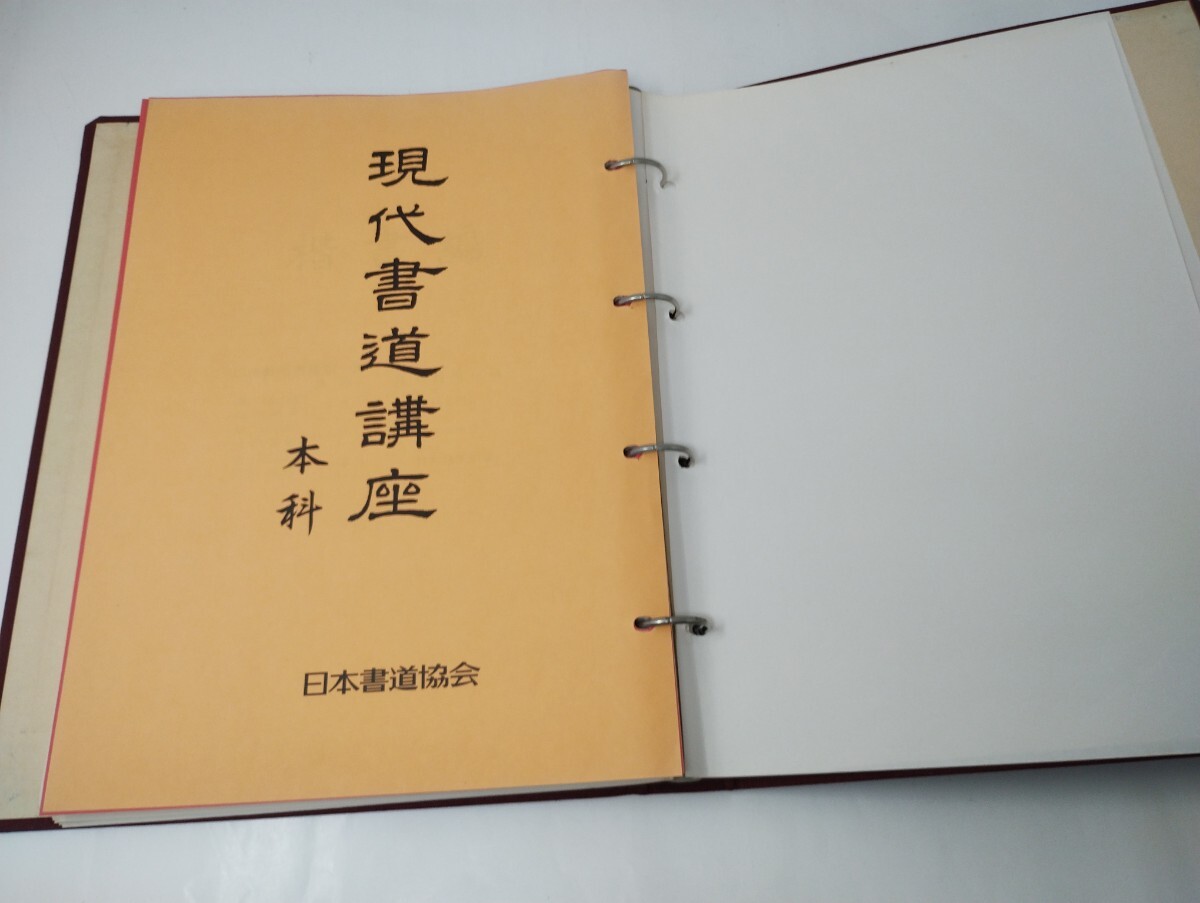 現代書道講座
本科
日本書道協会